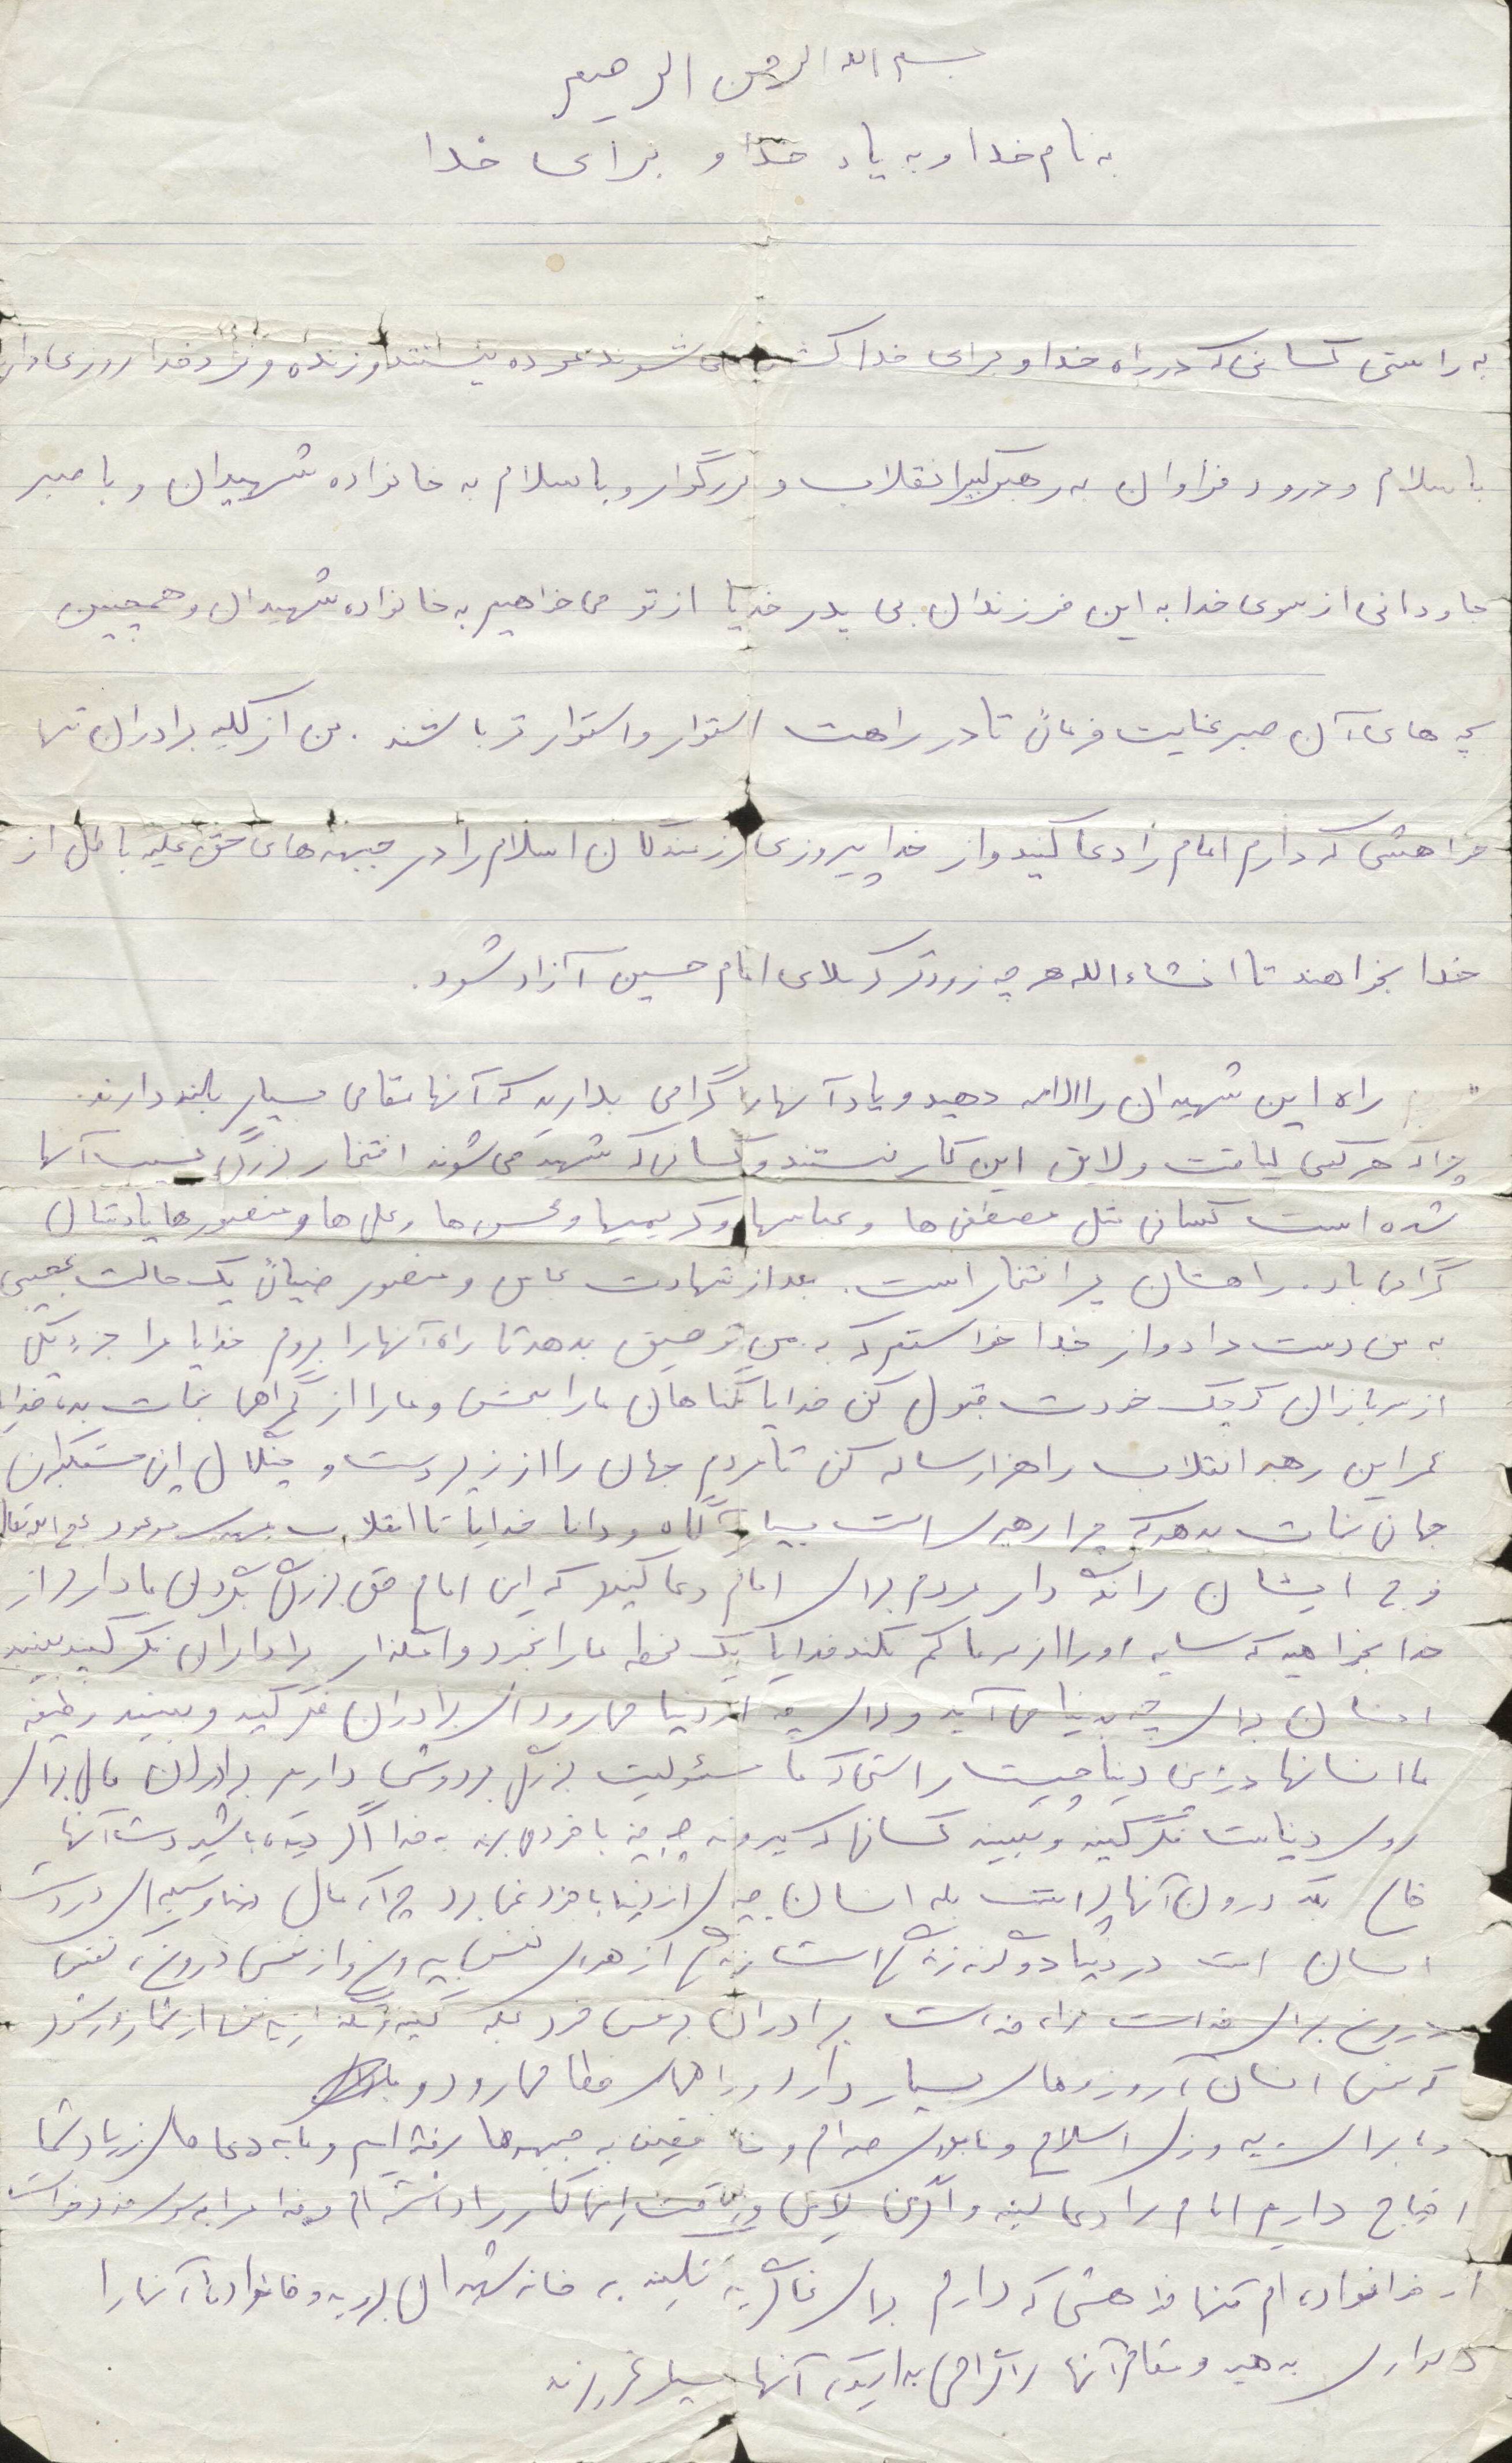 بسم الله الرحمن الرحیم
به نام خدا و به یاد خدا و برای خدا
به راستی کسانی که در راه خدا و برای خدا کشته می شوند مرده نیستند و زنده و نزد خدا روزی دارند
با سلام و درود فراوان به رهبر کبیر انقلاب و بزرگوار و با سلام به خانواده شهیدان و با صبر
جاودانی از سوی خدا به این فرزندان بی پدر خدایا از تو می خواهیم به خانواده شهیدان و همچنین
بچه های آن صبر عنایت فرمائی تا در راهت استوار و استوارتر باشند . من از کلیه برادران تنها
خواهشی که دارم امام را دعا کنید و از خدا پیروزی رزمندگان اسلام را در جبهه های حق علیه باطل از
خدا بخواهند تا انشاءالله هر چه زودتر کربلای امام حسین آزاد شود .
راه این شهیدان را ادامه دهید و یاد آنها را گرامی بدارید که آنها مقامی بسیار بلند دارند .
چرا که هر کسی لیاقت و لایق این کار نیستند و کسانی که شهید می شوند افتخار بزرگی نصیب آنها
شده است کسانی مثل مصطفی ها و عباسها و کریمیها و محسن ها و علی ها و منصورها یادشان
گرامی باد . راهشان پر افتخار است . بعد از شهادت عباس و منصور ضیائی یک حالت عجیبی
به من دست داد و از خدا خواستم که به من توفیق بدهد تا راه آنها را بروم خدایا مرا جزء یکی
از سربازان کوچک خودت قبول کن خدایا گناهان ما را ببخش و ما را از گمراهی نجات بده خدایا
عمر این رهبر انقلاب را هزار ساله کن تا مردم جهان را از زیر دست و چنگال این مستکبران
جهانی نجات بدهد که چرا رهبری است بسیار آگاه و دانا خدایا تا انقلاب مهدی موعود عج الله تعالی
فرجه ایشان را نگه دار مردم برای امام دعا کنید که این امام حق بزرگی بگردن ما دارد از
خدا بخواهید که سایه او را از سر ما کم نکند خدایا یک لحظه ما را بخود وامگذار برادران فکر کنید ببینید
انسان برای چه بدنیا می آید و برای چه از دنیا می رود ای برادران فکر کنید و ببینید وظیفه
ما انسانها در این دنیا چیست راستی که ما مسئولیت بزرگی بر دوش داریم برادران مال برای
روی دنیاست فکر کنید و ببینید کسانی که میروند چه چیز با خود می برند به خدا اگر دیده باشید دست آنها
خالی بلکه درون آنها پر است بله انسان چیزی از دنیا با خود نمی برد چرا که مال دنیا وسیله ای در دست
انسان است در دنیا دو گونه زندگی است زندگی از هوای نفس بیرونی و از نفس درونی ، نفس
درونی برای خداست برادران بر نفس خود غلبه کنید
که نفس انسان آرزوهای بسیار دارد و راههای خطا می رود و
ما برای پیروزی اسلام و نابودی صدام و منافقین به جبهه ها رفته ایم و ما به دعاهای زیاد شما
احتیاج داریم امام را دعا کنید و اگر من لایق و لیاقت این کار را داشته ام و خدا مرا به سوی خود خواست
از خانواده ام تنها خواهشی که دارم برای من گریه نکنید به خانه شهدا بروید و خانواده آنها را
دلداری بدهید و مقام آنها را گرامی بدارید که آنها بسیار عزیزند